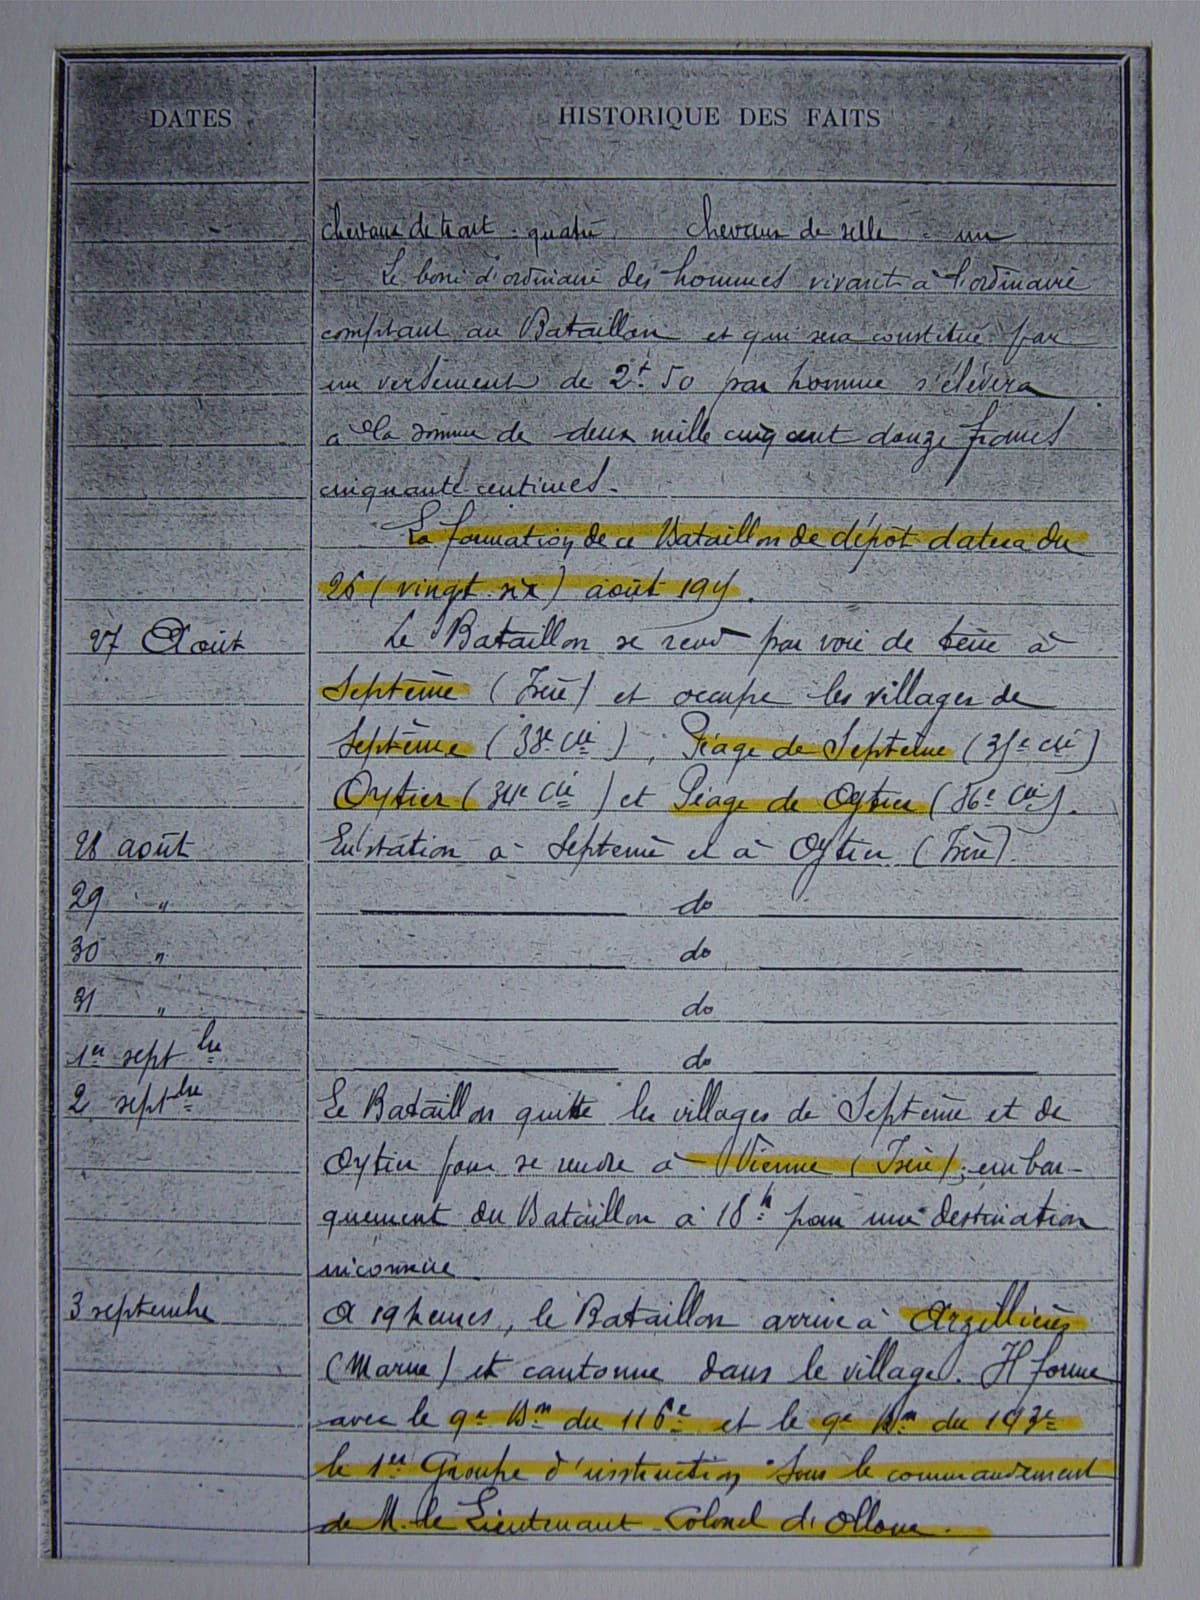 DATES
HISTORIQUE DES FAITS
chevaux de trait = quatre chevaux de selle = un
Le boni d'ordinaire des hommes vivant à l'ordinaire
comptant au Bataillon et qui sera constitué par
un versement de 2f.50 par homme s'élèvera
à la somme de deux mille cinq cent douze francs
cinquante centimes.
La formation de ce Bataillon de dépôt datera du
26 (vingt-six) août
27 Août Le Bataillon se rend par voie de terre à
Septème (Isère) et occupe les villages de
Septème (33e Cie), Péage de Septème (35e Cie)
Oytier (34e Cie) et Péage de Oytier (36e Cie).
28 août En station à Septème et à Oytier (Isère).
29 " do
30 " do
31 " do
1er septbre do
2 septbre Le Bataillon quitte les villages de Septème et de
Oytier pour se rendre à Vienne (Isère); embar-
quement du Bataillon à 18h pour une destination
inconnue.
3 septembre A 19 heures, le Bataillon arrive à Arzillières
(Marne) et cantonne dans le village. Il forme
avec le 9e Bon du 116e et le 9e Bon du
le 1er Groupe d'instruction sous le commandement
de M. le Lieutenant-Colonel